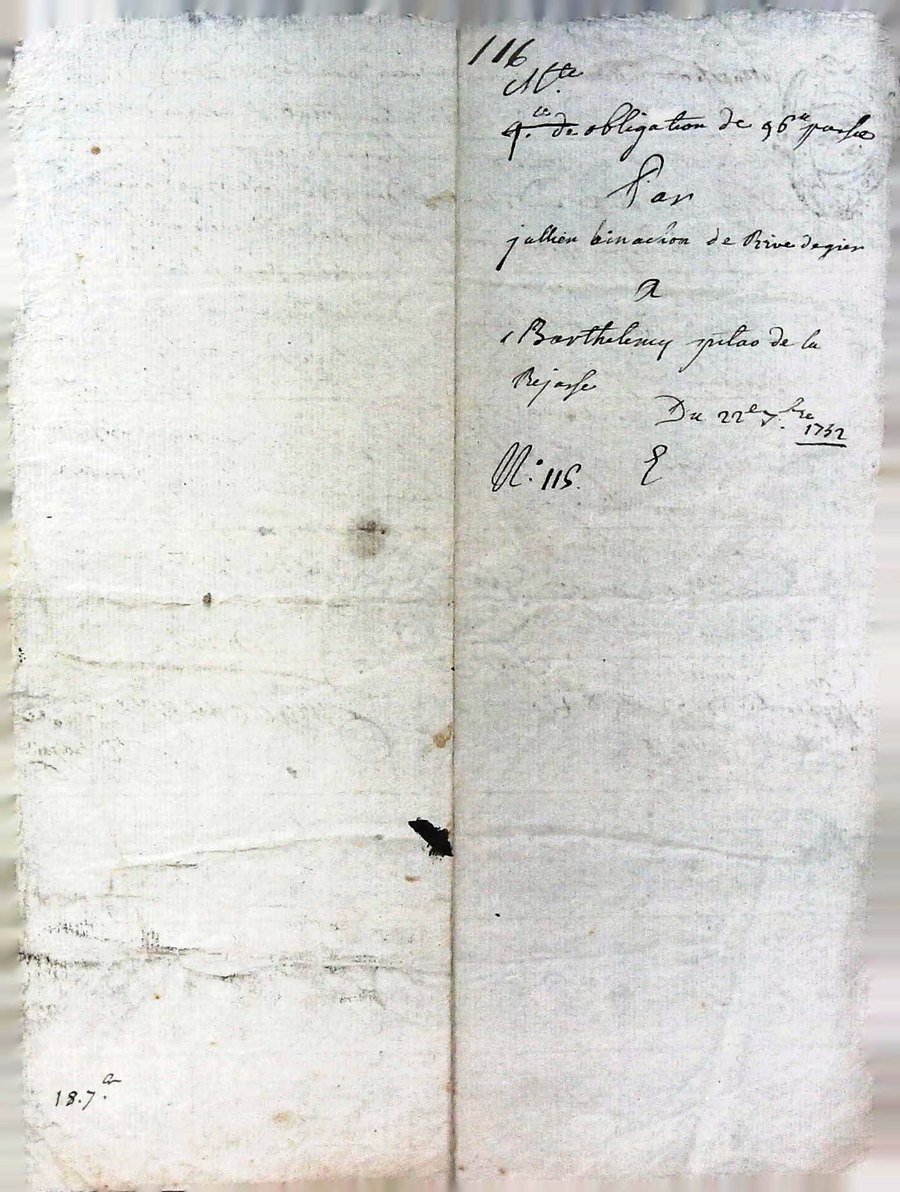 116
Mte
de obligation de 96ᵗᵗ passée
Par
jullien binachon de Rive degier
a
Barthelemy pitao de la
Rejasse
Du 22e 7bre
1732
N°. 115.
18.7.